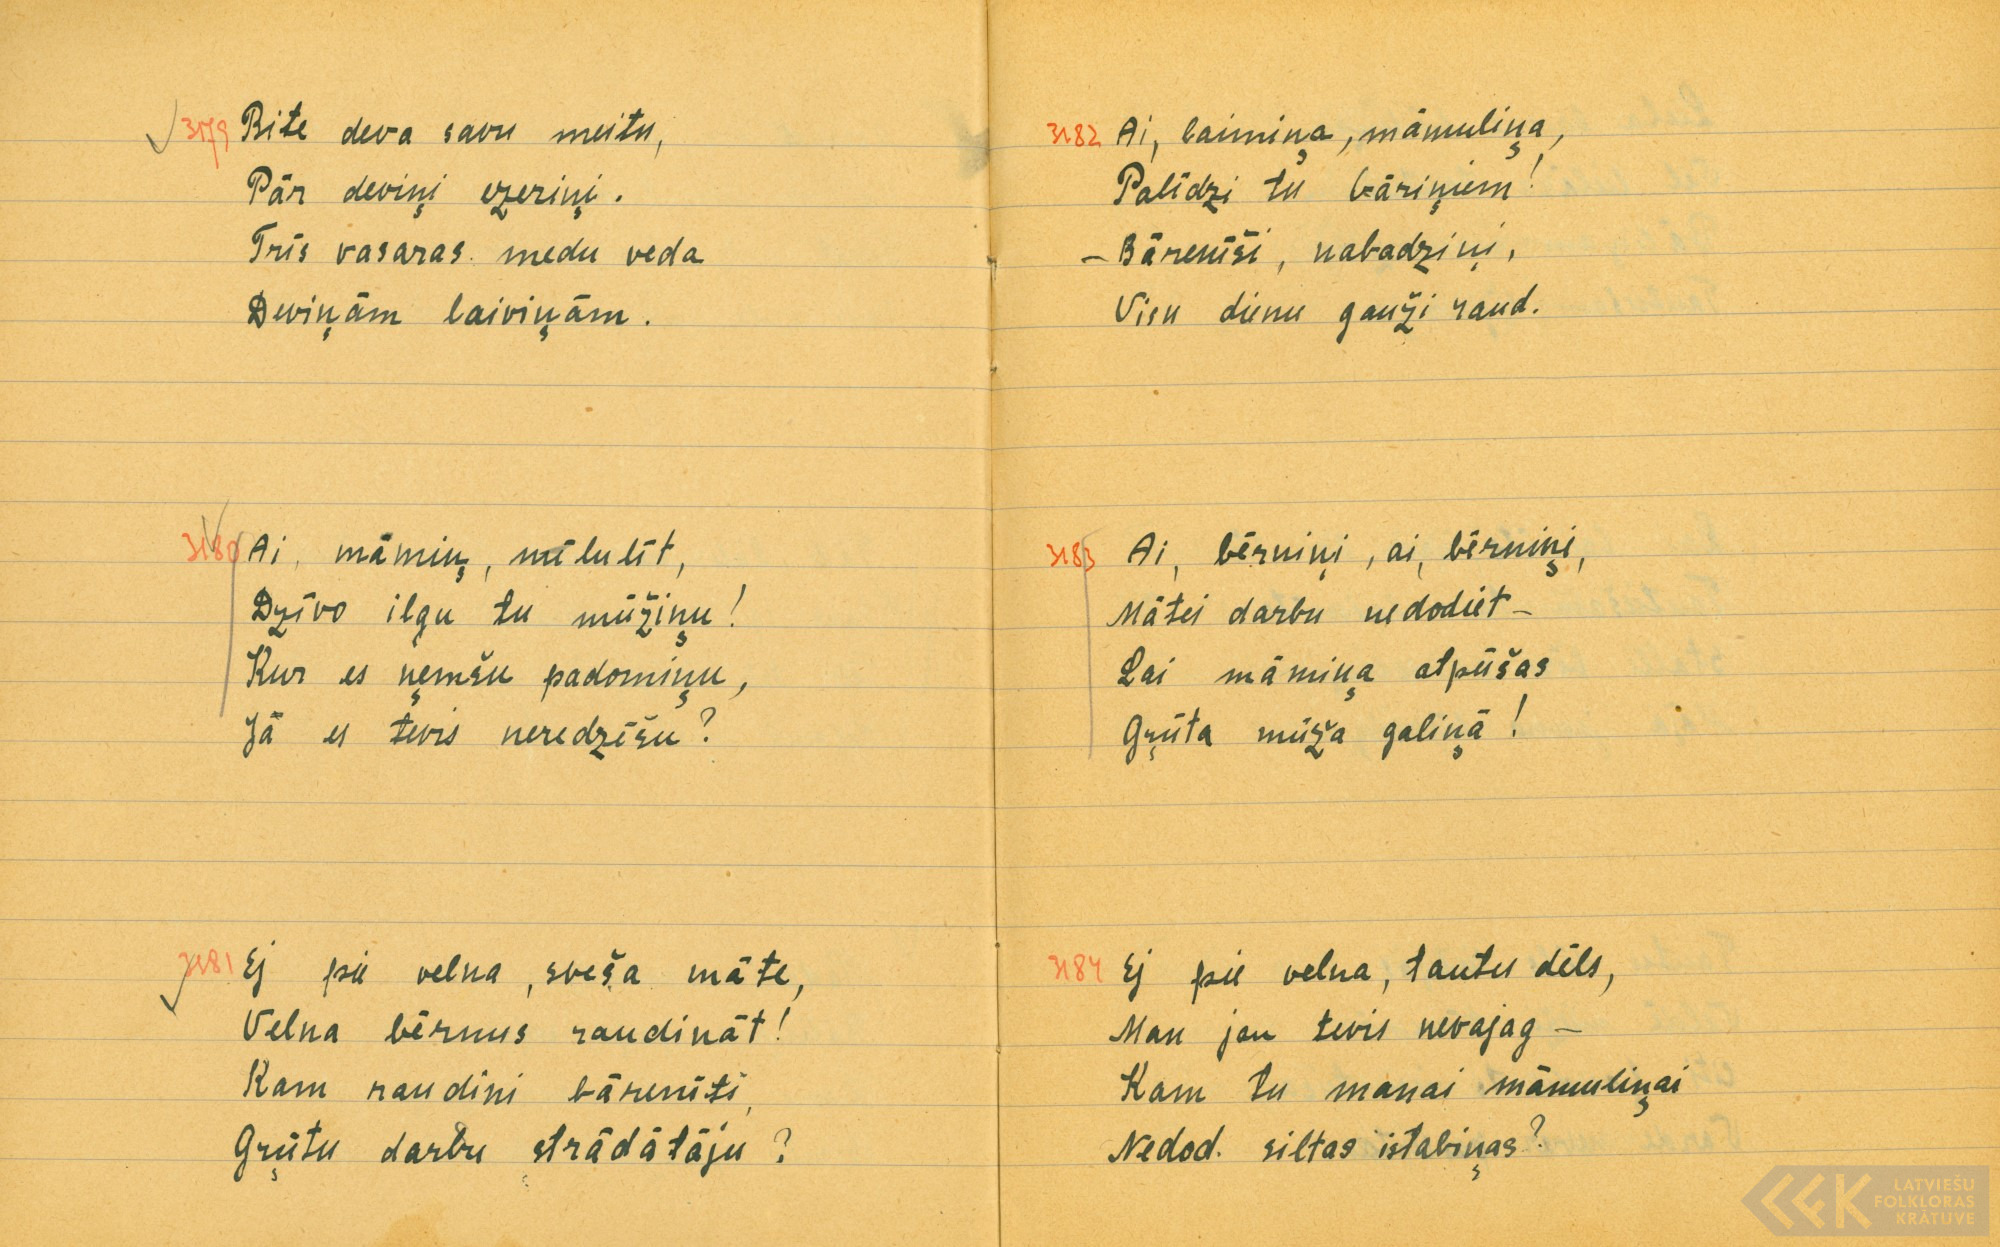 3179 Bite deva savu meitu,
Pār deviņi ezeriņi.
Trīs vasaras medu veda
Deviņām laiviņām.
3180 Ai, māmiņ, mīlulīt,
Dzīvo ilgu tu mūžiņu!
Kur es ņemšu padomiņu,
Jā es tevis neredzēšu?
3181 Ej pie velna, sveša māte,
Velna bērnus raudināt!
Kam raudini bārenīti,
Gŗūtu darbu strādātāju?
3182 Ai, laimiņa, māmuliņa,
Palīdzi tu bāriņiem!
– Bārenīši, nabadziņi,
Visu dienu gauži raud.
3183 Ai, bērniņi, ai, bērniņi,
Mātei darbu nedodiet –
Lai māmiņa atpūšas
Gŗūta mūža galiņā!
3184 Ej pie velna, tautu dēls,
Man jau tevis nevajag –
Kam tu manai māmuliņai
Nedod. siltas istabiņas?
LATVIEŠU
FOLKLORAS
KRĀTUVE